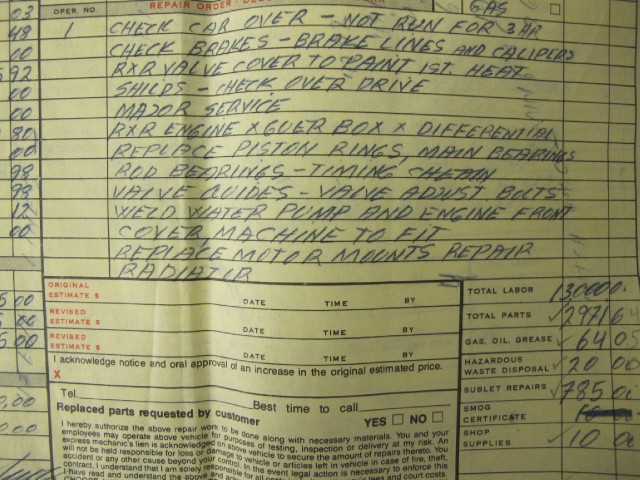 03 OPER. NO. REPAIR ORDER - GAS
48 1 CHECK CAR OVER - NOT RUN FOR 3 HR
00 CHECK BRAKES - BRAKE LINES AND CALIPERS
592 RXR VALVE COVER TO PAINT 1ST. HEAT
00 SHILDS - CHECK OVER DRIVE
00 MAJOR SERVICE
80 RXR ENGINE X GUER BOX X DIFFERENTIAL
00 REPLACE PISTON RINGS, MAIN BEARINGS
98 ROD BEARINGS - TIMING CHEAIN
98 VALVE GUIDES - VALVE ADJUST BOLTS
12 WELD WATER PUMP AND ENGINE FRONT
00 COVER, MACHINE TO FIT
REPLACE MOTOR MOUNTS REPAIR
RADIATUR
ORIGINAL ESTIMATE $ DATE TIME BY
REVISED ESTIMATE $ DATE TIME BY
REVISED ESTIMATE $ DATE TIME BY
I acknowledge notice and oral approval of an increase in the original estimated price.
X
Tel. Best time to call
Replaced parts requested by customer YES NO
I hereby authorize the above repair work to be done along with necessary materials. You and your
employees may operate above vehicle for purposes of testing, inspection or delivery at my risk. An
express mechanic's lien is acknowledged on above vehicle to secure the amount of repairs thereto. You
will not be held responsible for loss or damage to vehicle or articles left in vehicle in case of fire, theft,
accident or any other cause beyond your control. In the event legal action is necessary to enforce this
contract, I understand that I am solely responsible for all costs
I have read and understand the above
TOTAL LABOR 130000.
TOTAL PARTS 2971 64
GAS, OIL, GREASE 64 05
HAZARDOUS WASTE DISPOSAL 20 00
SUBLET REPAIRS 785 00
SMOG CERTIFICATE
SHOP SUPPLIES 10 00